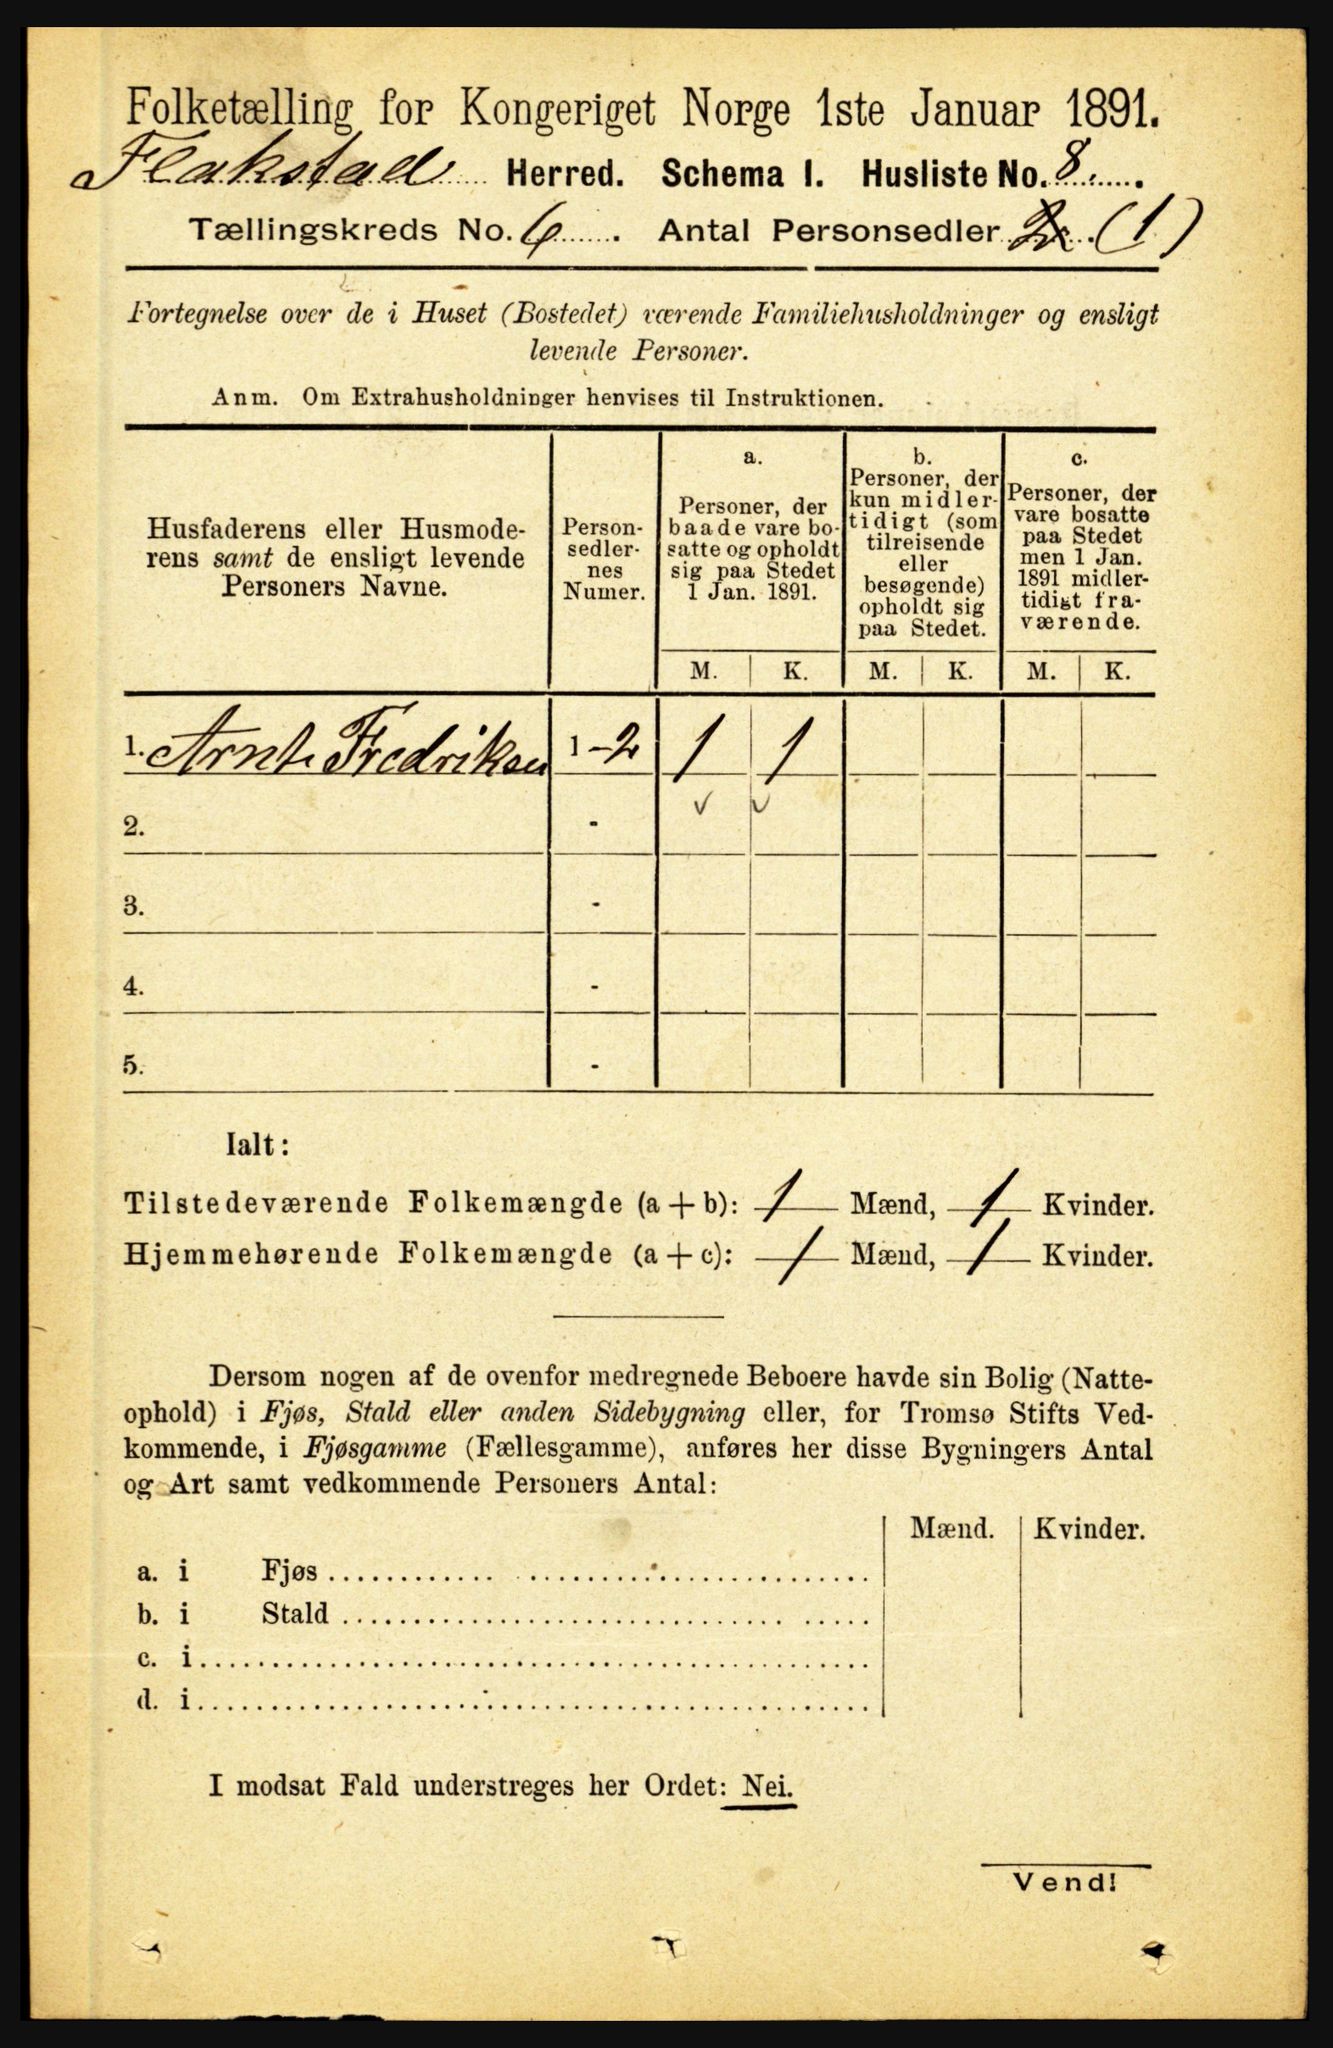 Folketælling for Kongeriget Norge 1ste Januar 1891.
Flakstad Herred. Schema I. Husliste No. 8
Tællingskreds No. 6. Antal Personsedler 2 (1)
Fortegnelse over de i Huset (Bostedet) værende Familiehusholdninger og ensligt
levende Personer.
Anm. Om Extrahusholdninger henvises til Instruktionen.
Husfaderens eller Husmode-
rens samt de ensligt levende
Personers Navne.
Person-
sedler-
nes
Numer.
a.
Personer, der
baade vare bo-
satte og opholdt
sig paa Stedet
1 Jan. 1891.
b.
Personer, der
kun midler-
tidigt (som
tilreisende
eller
besøgende)
opholdt sig
paa Stedet.
c.
Personer, der
vare bosatte
paa Stedet
men 1 Jan.
1891 midler-
tidigt fra-
værende.
M. K. M. K. M. K.
1. Arnt Fredriksen 1-2 1 1
2. -
3. -
4. -
5. -
Ialt:
Tilstedeværende Folkemængde (a + b): 1 Mænd, 1 Kvinder.
Hjemmehørende Folkemængde (a + c): 1 Mænd, 1 Kvinder.
Dersom nogen af de ovenfor medregnede Beboere havde sin Bolig (Natte-
ophold) i Fjøs, Stald eller anden Sidebygning eller, for Tromsø Stifts Ved-
kommende, i Fjøsgamme (Fællesgamme), anføres her disse Bygningers Antal
og Art samt vedkommende Personers Antal:
Mænd. Kvinder.
a. i Fjøs
b. i Stald
c. i
d. i
I modsat Fald understreges her Ordet: Nei.
Vend!